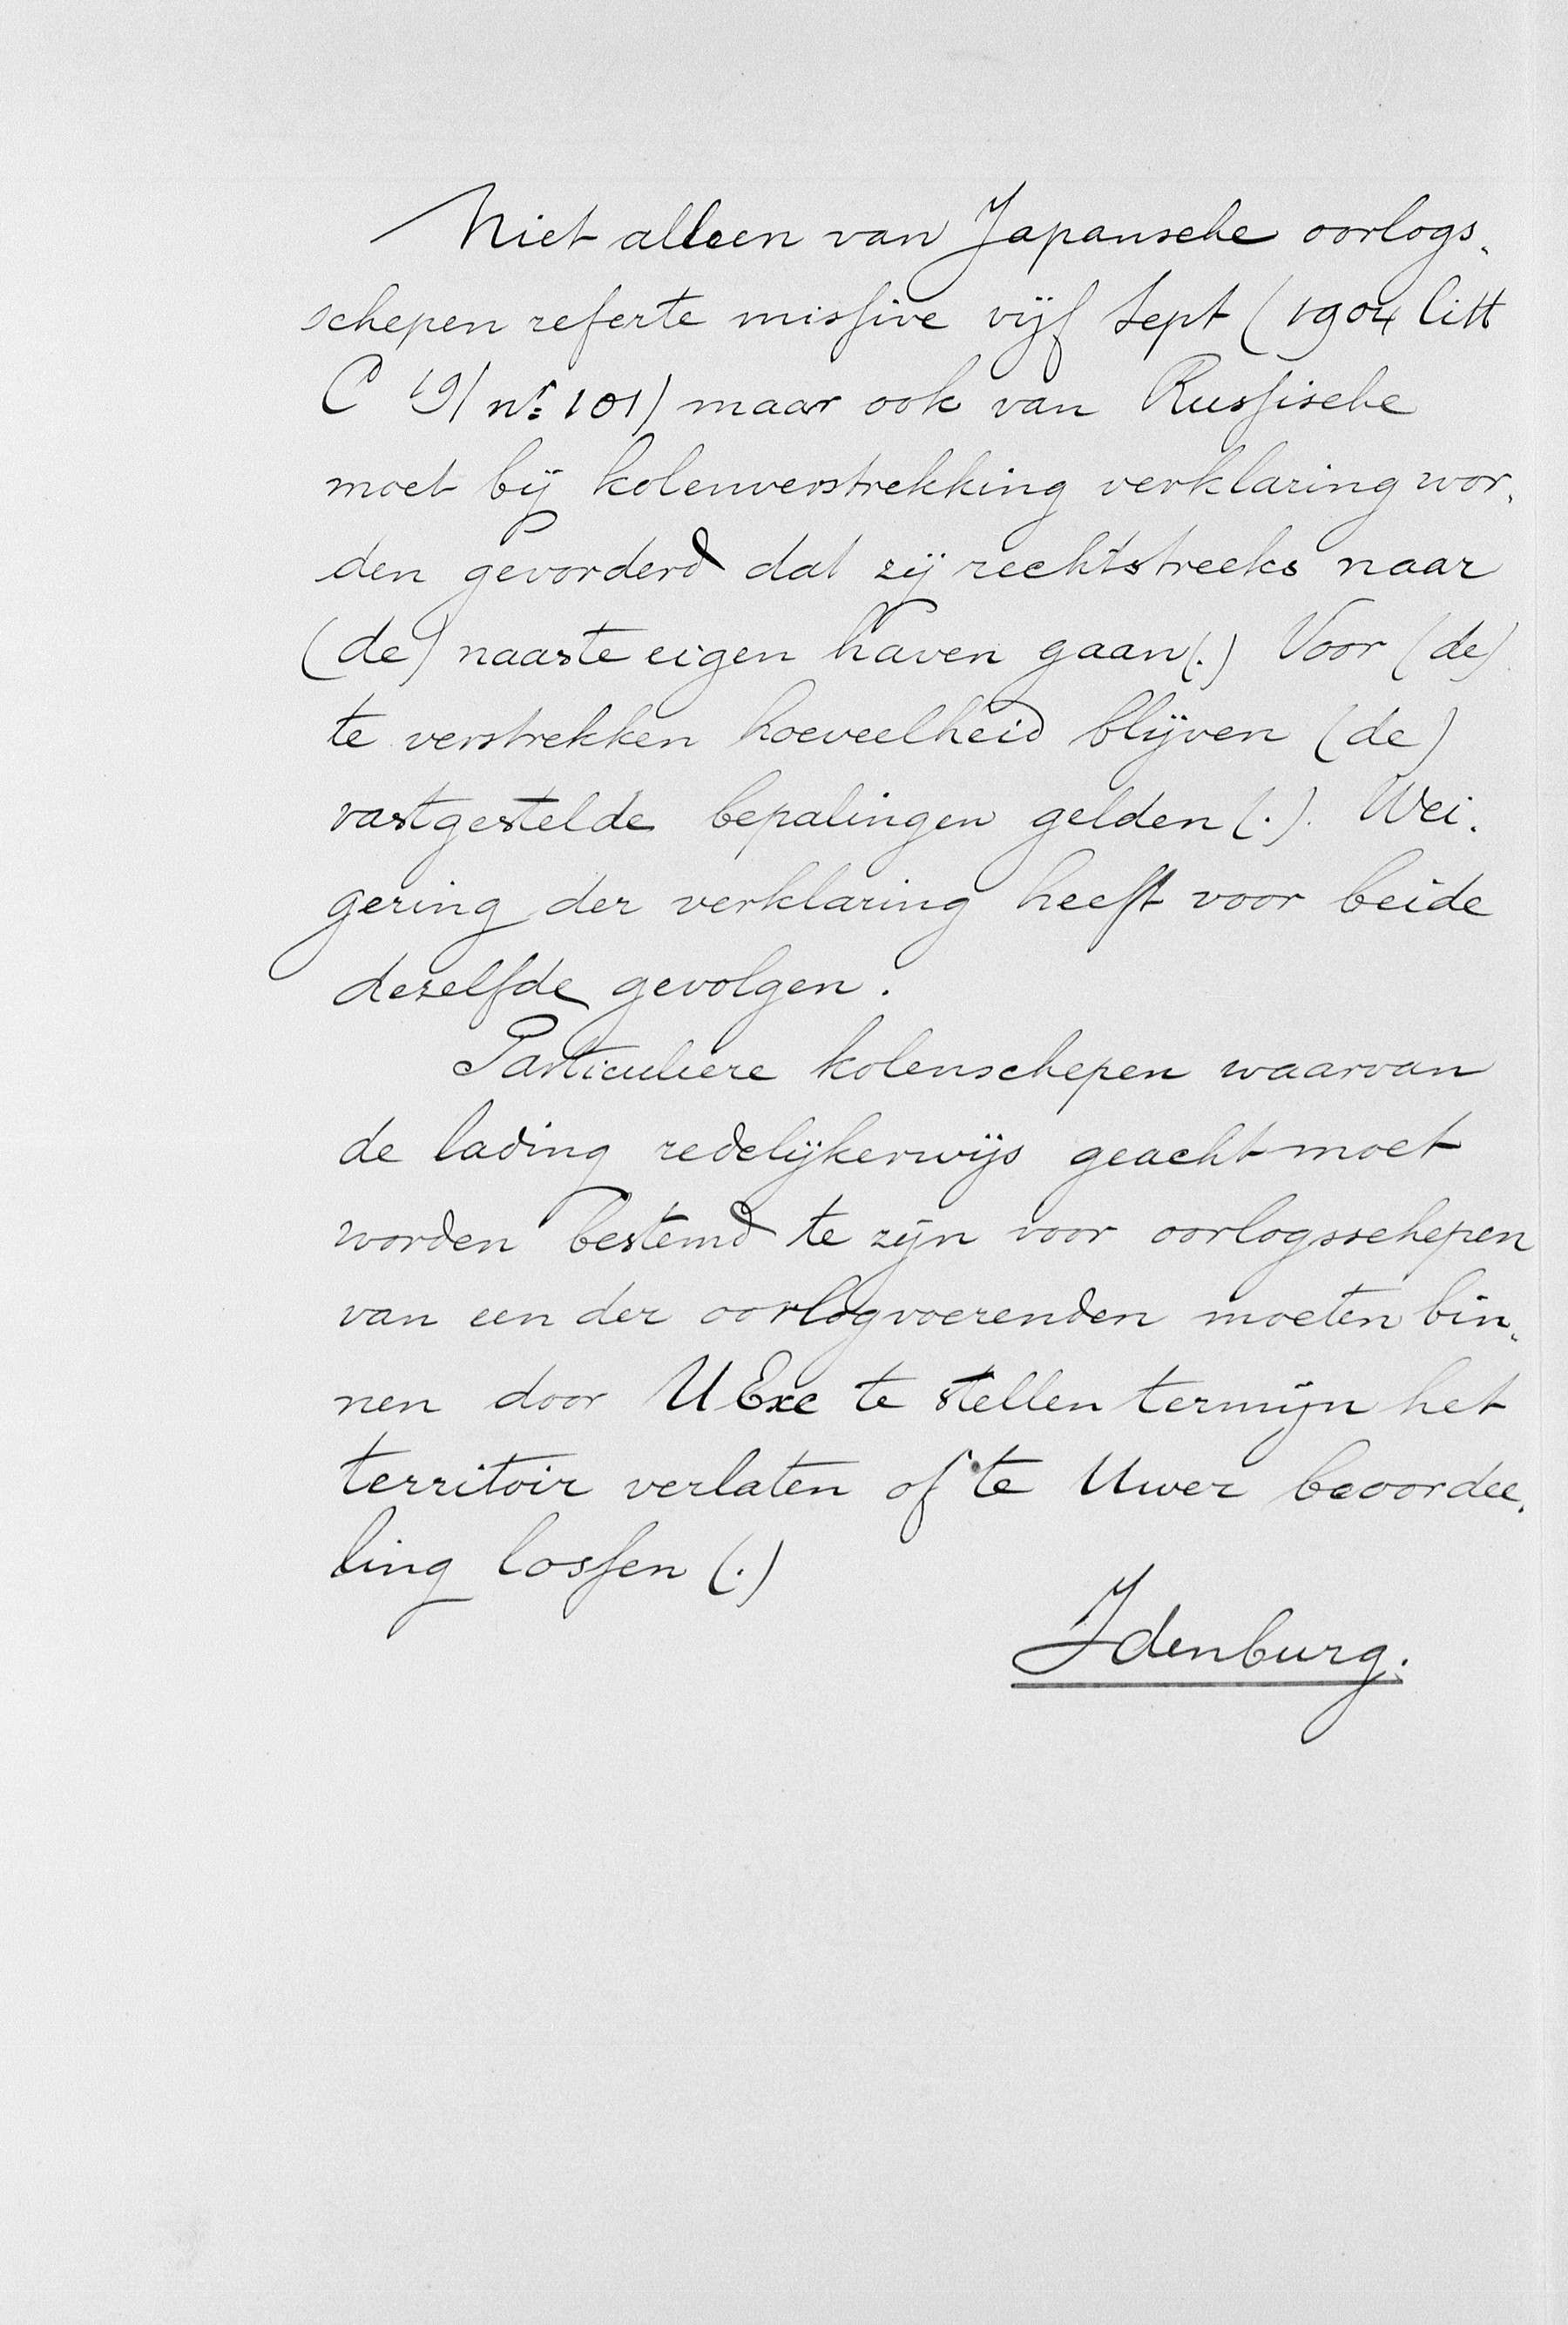 Niet alleen van Japansche oorlogs-
schepen referte missive vijf Sept (1904 litt
C 19/ no: 101) maar ook van Russische
moet bij kolenverstrekking verklaring wor-
den gevorderd dat zij rechtstreeks naar
(de) naaste eigen haven gaan (.) Voor (de)
te verstrekken hoeveelheid blijven (de)
vastgestelde bepalingen gelden (.). Wei-
gering der verklaring heeft voor beide
dezelfde gevolgen.
Particuliere kolenschepen waarvan
de lading redelijkerwijs geacht moet
worden bestemd te zijn voor oorlogsschepen
van een der oorlogvoerenden moeten bin-
nen door UExc te stellen termijn het
territoir verlaten of te Uwer beoordee-
ling lossen (.)
Idenburg.